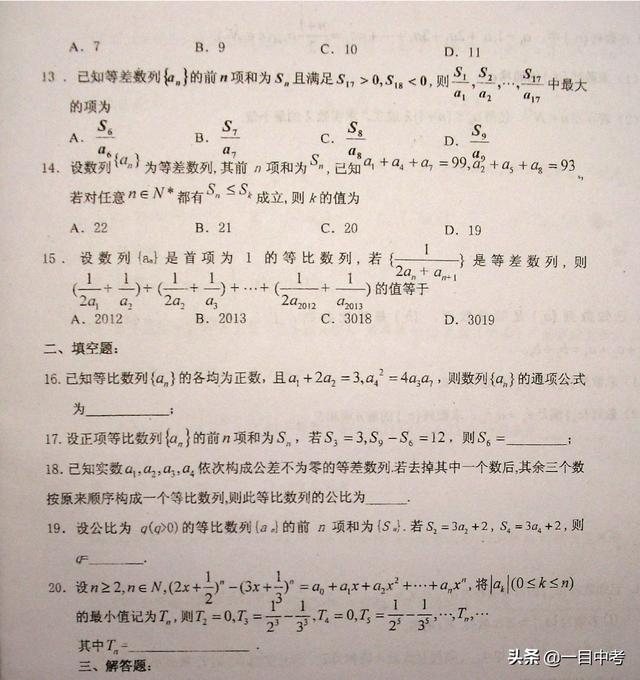 A. 7 B. 9 C. 10 D. 11
13 . 已知等差数列{aₙ}的前n项和为Sₙ且满足S₁₇>0,S₁₈<0, 则 S₁/a₁, S₂/a₂, …, S₁₇/a₁₇ 中最大
的项为
A. S₆/a₆ B. S₇/a₇ C. S₈/a₈ D. S₉/a₉
14. 设数列{aₙ}为等差数列, 其前 n 项和为Sₙ, 已知a₁+a₄+a₇=99,a₂+a₅+a₈=93,
若对任意n∈N*都有Sₙ≤Sₖ成立, 则 k 的值为
A. 22 B. 21 C. 20 D. 19
15 . 设数列{aₙ}是首项为 1 的等比数列, 若{1/(2aₙ+aₙ₊₁)}是等差数列, 则
(1/2a₁+1/a₂)+(1/2a₂+1/a₃)+⋯+(1/2a₂₀₁₂+1/a₂₀₁₃)的值等于
A. 2012 B. 2013 C. 3018 D. 3019
二、填空题:
16. 已知等比数列{aₙ}的各均为正数, 且a₁+2a₂=3,a₄²=4a₃a₇, 则数列{aₙ}的通项公式
为__________;
17. 设正项等比数列{aₙ}的前n项和为Sₙ, 若S₃=3,S₉−S₆=12, 则S₆=________;
18. 已知实数a₁,a₂,a₃,a₄依次构成公差不为零的等差数列.若去掉其中一个数后,其余三个数
按原来顺序构成一个等比数列,则此等比数列的公比为______.
19. 设公比为 q(q>0)的等比数列{aₙ}的前 n 项和为{Sₙ}. 若 S₂=3a₂+2, S₄=3a₄+2, 则
q=________.
20. 设n≥2,n∈N,(2x+1/2)ⁿ−(3x+1/3)ⁿ=a₀+a₁x+a₂x²+⋯+aₙxⁿ, 将|aₖ|(0≤k≤n)
的最小值记为Tₙ, 则T₂=0,T₃=1/2³−1/3³,T₄=0,T₅=1/2⁵−1/3⁵,⋯,Tₙ,⋯
其中Tₙ=________________.
三、解答题:
头条 @一目中考